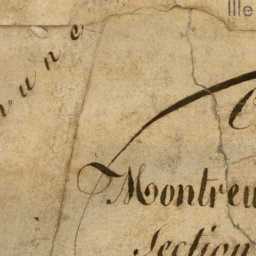 Ille
Montreu
Section